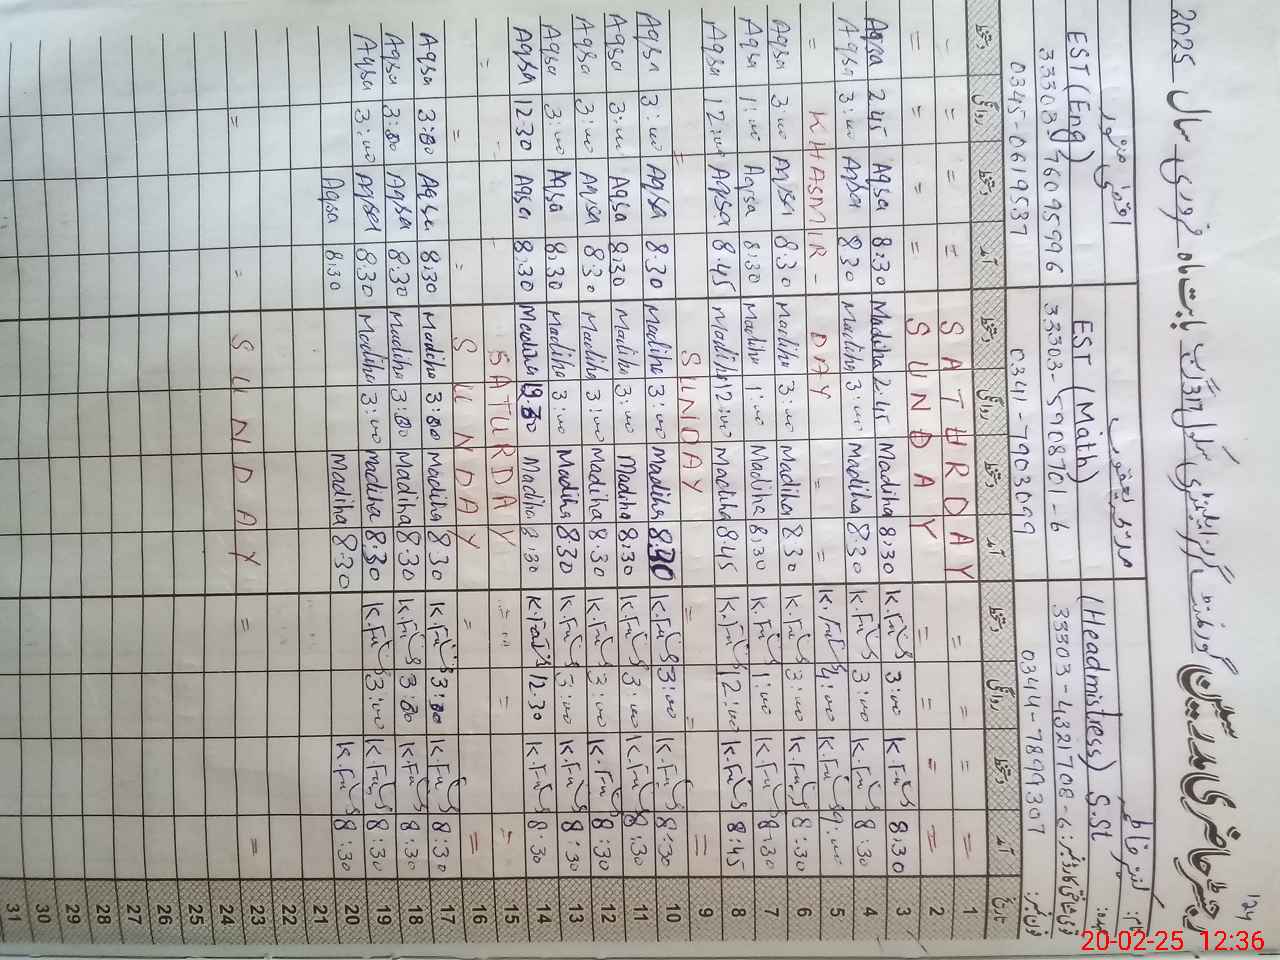 رجسٹر حاضری مدرسین گورنمنٹ گرلز ایلیمنٹری سکول بابت ماہ فروری سال 2025
نام: کنیز فاطمہ مدیحہ یعقوب اقصٰی منظور
عہدہ: (Headmistress) S.St EST (Math) EST (Eng)
قومی شناختی کارڈ نمبر: 33303-4321708-6 33303-5908701-6 33303 4609599 6
فون نمبر: 0344-7899307 0341-7903099 0345-0619537
تاریخ آمد دستخط روانگی دستخط آمد دستخط روانگی دستخط آمد دستخط روانگی دستخط
1 = = = SATURDAY = = = =
2 = = = SUNDAY = = = =
3 8:30 3:00 8:30 Madiha 2:45 Madiha 8:30 Aqsa 2:45 Aqsa
4 8:30 3:00 8:30 Madiha 3:00 Madiha 8:30 Aqsa 3:00 Aqsa
5 9:00 4:00 = = KHASMIR - DAY =
6 8:30 3:00 8:30 Madiha 3:00 Madiha 8:30 Aqsa 3:00 Aqsa
7 8:30 1:00 8:30 Madiha 1:00 Madiha 8:30 Aqsa 1:00 Aqsa
8 8:45 12:00 8:45 Madiha 12:00 Madiha 8:45 Aqsa 12:00 Aqsa
9 = = = SUNDAY =
10 8:30 3:00 8:30 Madiha 3:00 Madiha 8:30 Aqsa 3:00 Aqsa
11 8:30 3:00 8:30 Madiha 3:00 Madiha 8:30 Aqsa 3:00 Aqsa
12 8:30 3:00 8:30 Madiha 3:00 Madiha 8:30 Aqsa 3:00 Aqsa
13 8:30 3:00 8:30 Madiha 3:00 Madiha 8:30 Aqsa 3:00 Aqsa
14 8:30 12:30 8:30 Madiha 12:30 Madiha 8:30 Aqsa 12:30 Aqsa
15 = = = SATURDAY =
16 = = SUNDAY = = =
17 8:30 3:00 8:30 Madiha 3:00 Madiha 8:30 Aqsa 3:00 Aqsa
18 8:30 3:00 8:30 Madiha 3:00 Madiha 8:30 Aqsa 3:00 Aqsa
19 8:30 3:00 8:30 Madiha 3:00 Madiha 8:30 Aqsa 3:00 Aqsa
20 8:30 8:30 Madiha 8:30 Aqsa
21
22
23 = = SUNDAY = =
24
25
26
27
28
29
30
31
20-02-25 12:36